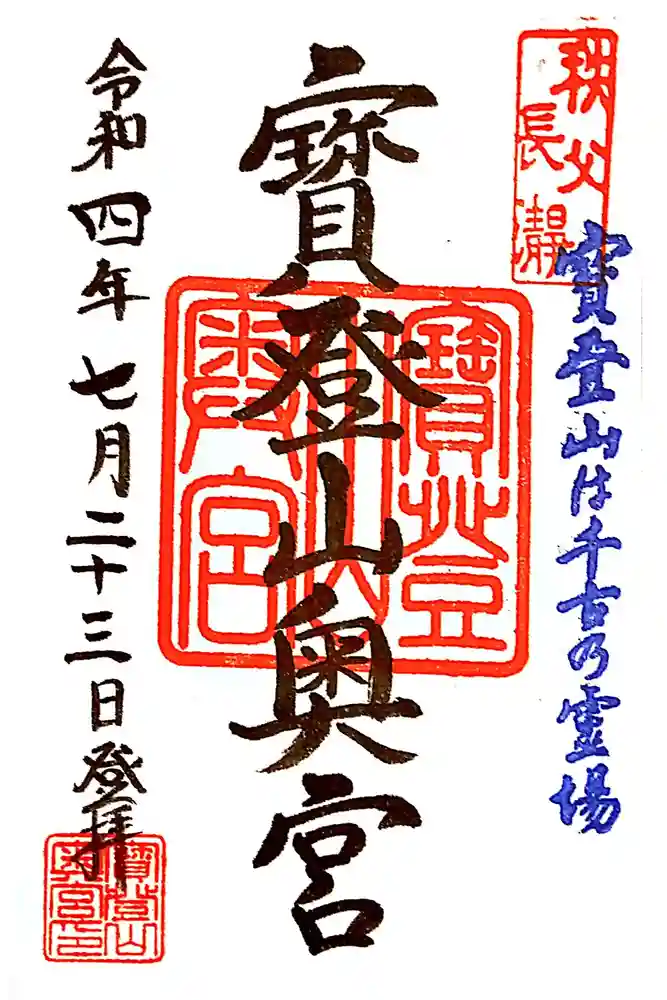 秩父
長瀞
寳登山は千古の霊場
寳登山奥宮
寳登山奥宮
令和四年七月二十三日登拝
寳登山奥宮印